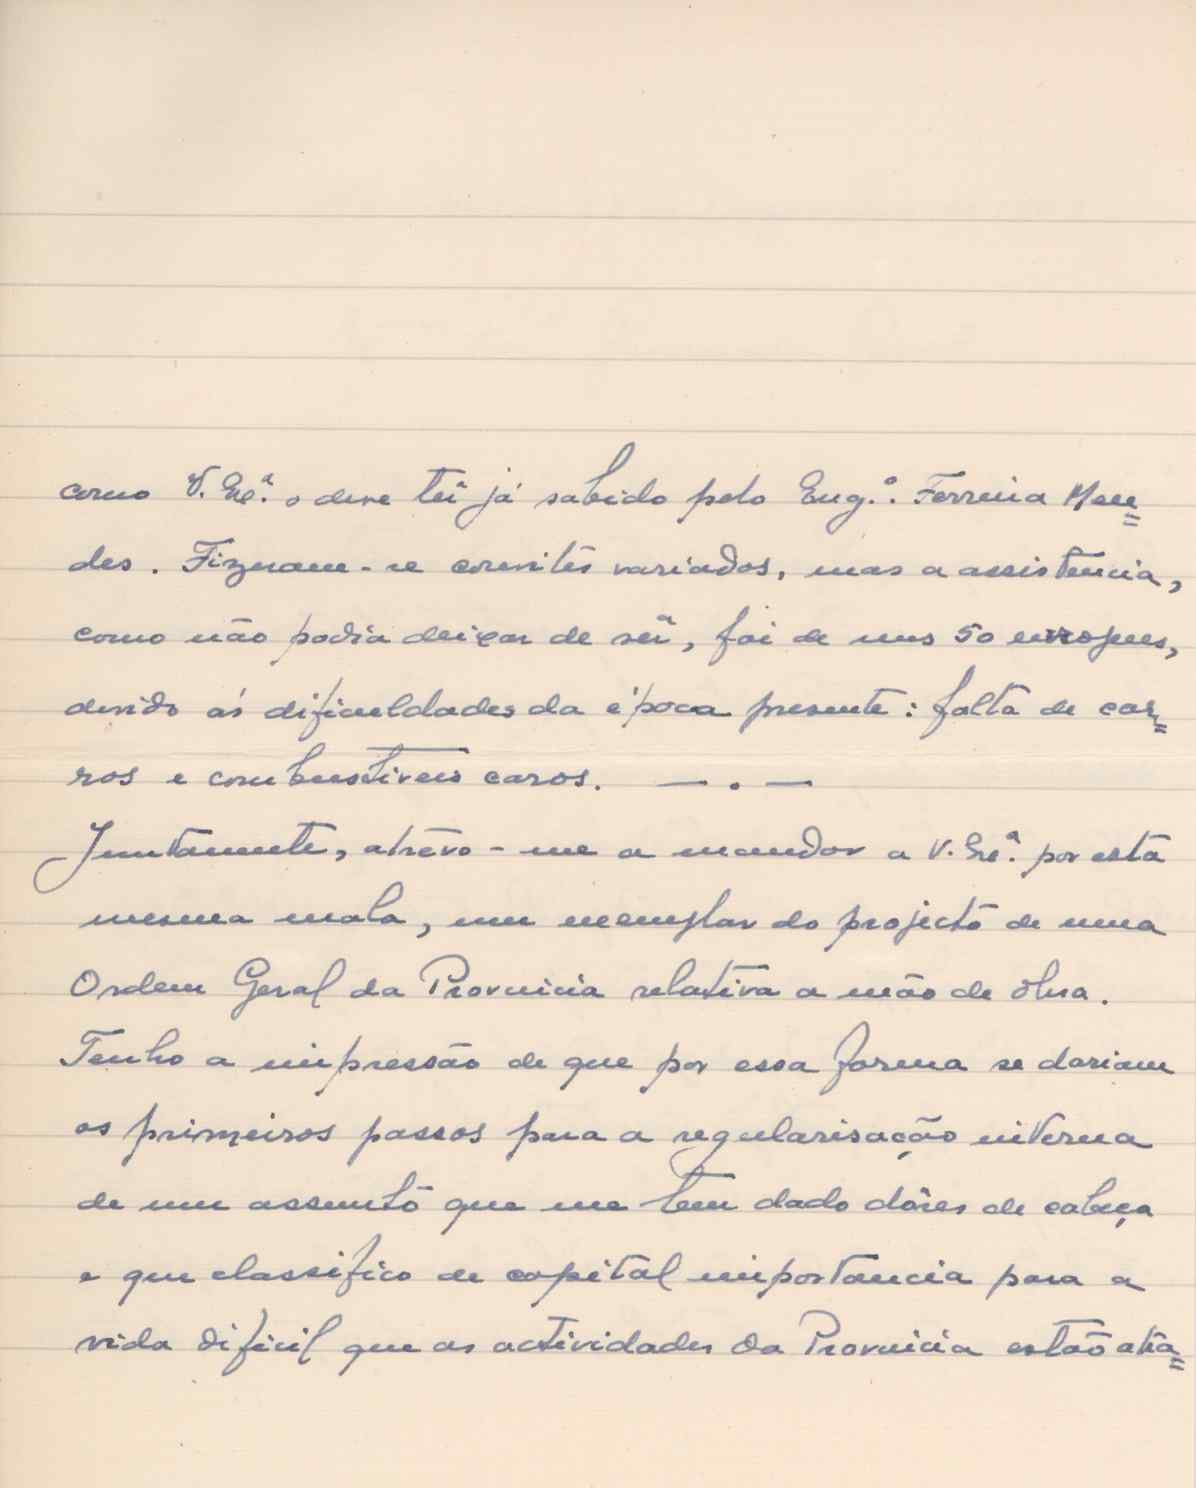 como V. Exª. o deve têr já sabido pelo Eng.º. Ferreira Men=
des. Fizeram-se convites variados, mas a assistencia,
como não podia deixar de sêr, foi de uns 50 europeus,
devido ás dificuldades da época presente: falta de car=
ros e combustiveis caros. — . —
Juntamente, atrevo-me a mandar a V. Exª. por esta
mesma mala, um exemplar do projecto de uma
Ordem Geral da Provincia relativa a mão de obra.
Tenho a impressão de que por essa forma se dariam
os primeiros passos para a regularisação interna
de um assunto que me tem dado dôres de cabeça
e que classifico de capital importancia para a
vida dificil que as actividades da Provincia estão atra=